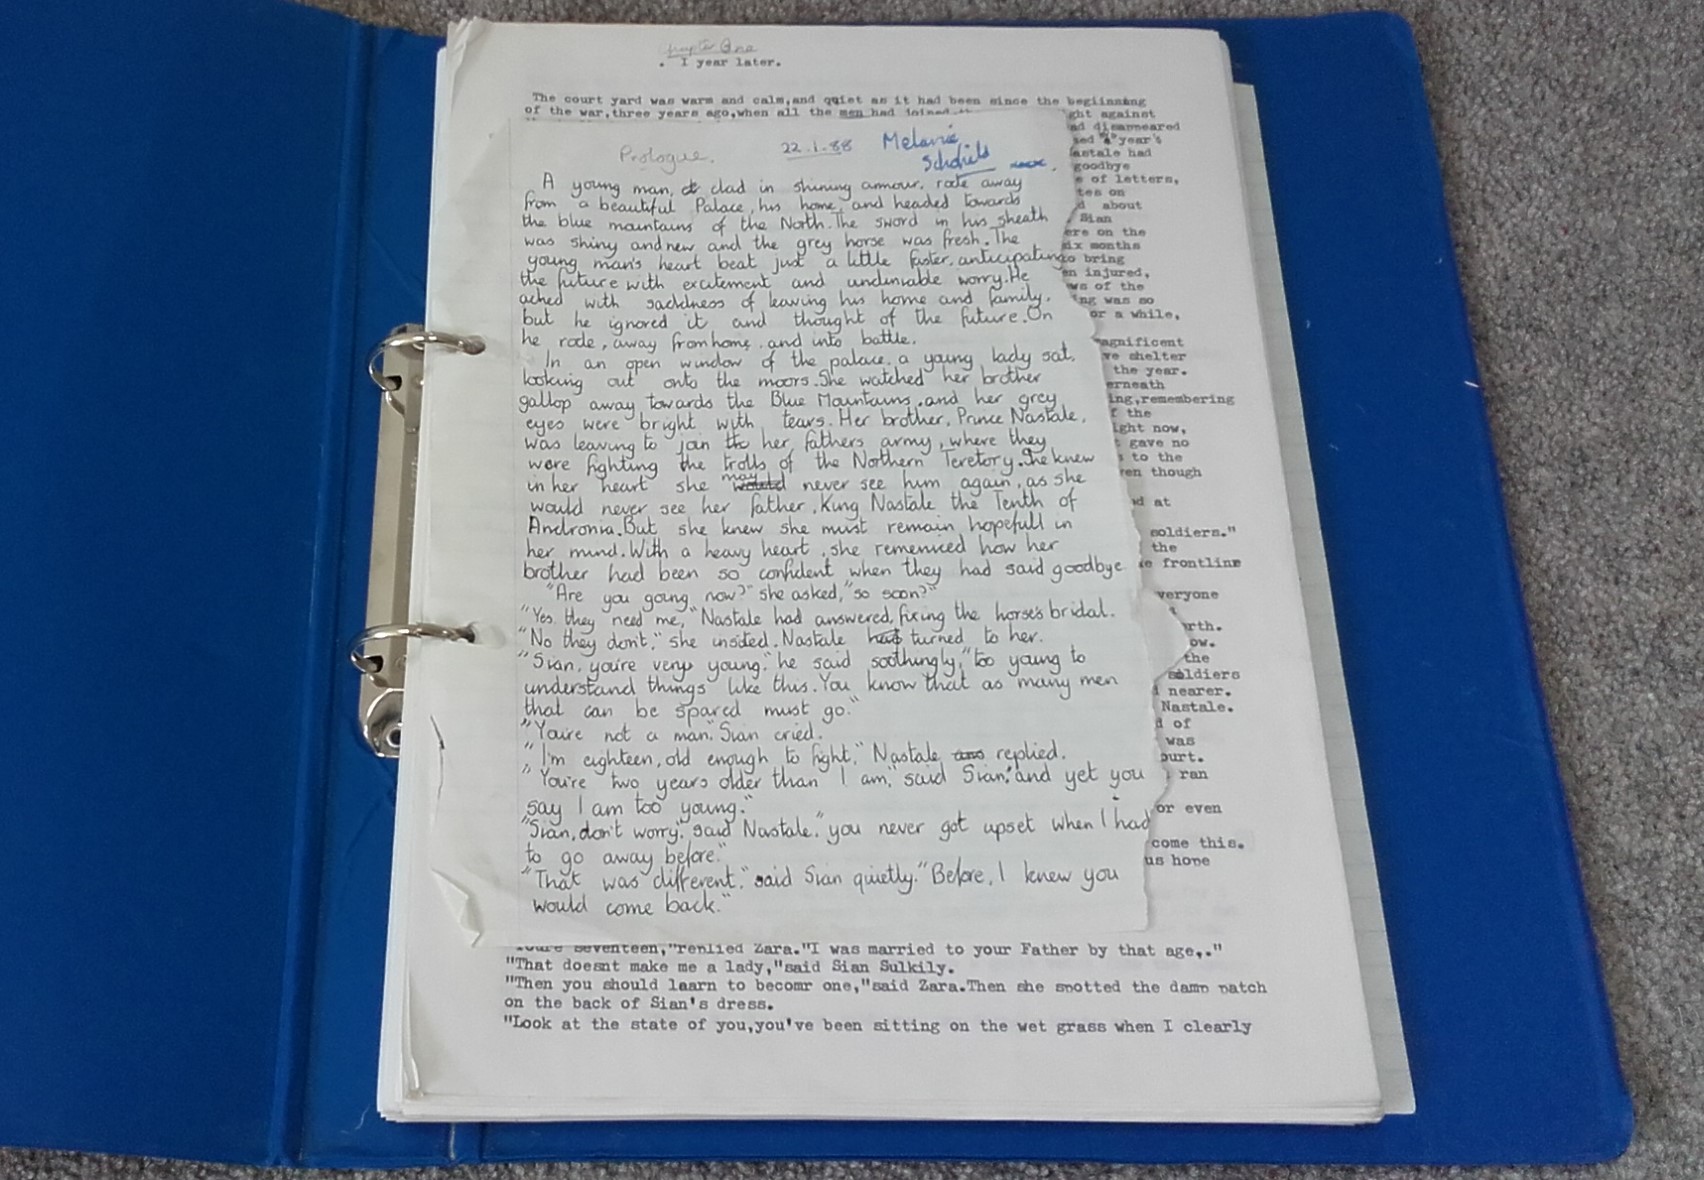 Chapter One
. I year later.
The court yard was warm and calm,and qqiet as it had been since the begiinning
of the war,three years ago,when all the men had joined
ght against
ad disappeared
year's
astale had
goodbye
e of letters,
tes on
d about
. Sian
ere on the
six months
to bring
en injured,
ws of the
ng was so
or a while,
agnificent
ve shelter
the year.
erneath
ing,remembering
f the
ight now,
t gave no
s to the
ven though
d at
soldiers."
the
e frontline
veryone
rth.
ow.
the
soldiers
d nearer.
Nastale.
d of
was
ourt.
ran
or even
come this.
us hope
Prologue. 22.1.88 Melanie
Schofield
A young man, clad in shining armour, rode away
from a beautiful Palace, his home, and headed towards
the blue mountains of the North. The sword in his sheath
was shiny and new and the grey horse was fresh. The
young man's heart beat just a little faster, anticipating
the future with excitement and undeniable worry. He
ached with saddness of leaving his home and family,
but he ignored it and thought of the future. On
he rode, away from home, and into battle.
In an open window of the palace, a young lady sat,
looking out onto the moors. She watched her brother
gallop away towards the Blue Mountains, and her grey
eyes were bright with tears. Her brother, Prince Nastale,
was leaving to join her fathers army, where they
were fighting the trolls of the Northern Teretory. She knew
in her heart she may would never see him again, as she
would never see her father, King Nastale the Tenth of
Andronia. But she knew she must remain hopefull in
her mind. With a heavy heart, she remeniced how her
brother had been so confident when they had said goodbye.
"Are you going now?" she asked, "so soon?"
"Yes, they need me," Nastale had answered, fixing the horse's bridal.
"No they don't," she insisted. Nastale had turned to her.
"Sian, you're very young," he said soothingly, "too young to
understand things like this. You know that as many men
that can be spared must go."
"You're not a man," Sian cried.
"I'm eighteen, old enough to fight," Nastale replied.
"You're two years older than I am," said Sian, "and yet you
say I am too young."
"Sian, don't worry," said Nastale, "you never got upset when I had
to go away before."
"That was different," said Sian quietly. "Before, I knew you
would come back."
seventeen,"replied Zara."I was married to your Father by that age,."
"That doesnt make me a lady,"said Sian Sulkily.
"Then you should laarn to becomr one,"said Zara.Then she spotted the damp patch
on the back of Sian's dress.
"Look at the state of you,you've been sitting on the wet grass when I clearly